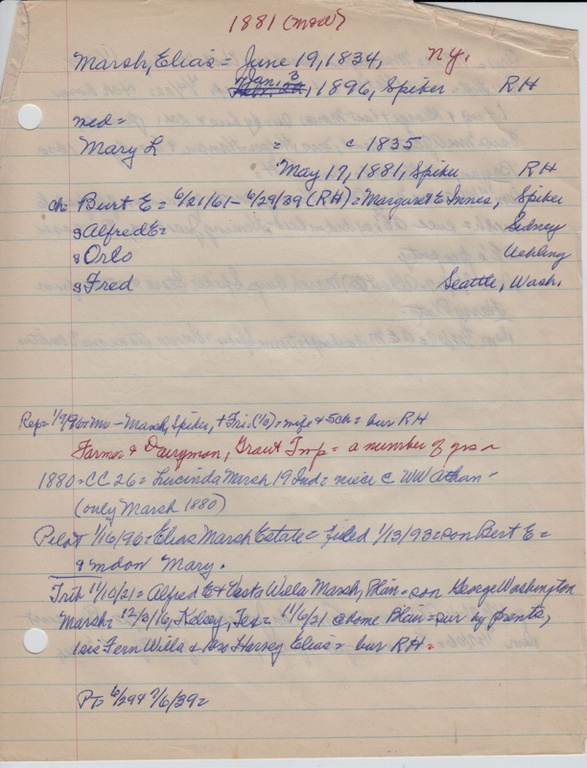 1881 (mood)
Marsh, Elias = June 19, 1834, N.Y.
Jan. 3, 1896, Spiker RH
med =
Mary L = c 1835
May 17, 1881, Spiker RH
ch Burt E = 6/21/61 - 6/29/39 (RH) = Margaret E Innes, Spiker
Alfred E = Sidney
Orlo Uehling
Fred Seattle, Wash.
Rep = 1/9/96 = Marsh, Spiker, Fri. = wife & 5 ch = bur RH
Farmer & Dairyman, Grant Twp = a number of yrs
1880 = CC 26 = Lucinda Marsh 19 Ind = niece c WW
(only Marsh 1880)
Pilot 1/16/96 = Elias Marsh Estate = filed 1/13/93 = son Burt E =
Mary.
Trib 11/10/21 = Alfred E & Vesta Wella Marsh, Blair = son George Washington
Marsh = 12/3/16, Kelsey, Tex = 11/6/21 @ home Blair = sur by prents,
1 sis Fern Willa & bro Harvey Elias = bur RH =
PT = 6/29 & 7/6/39 =